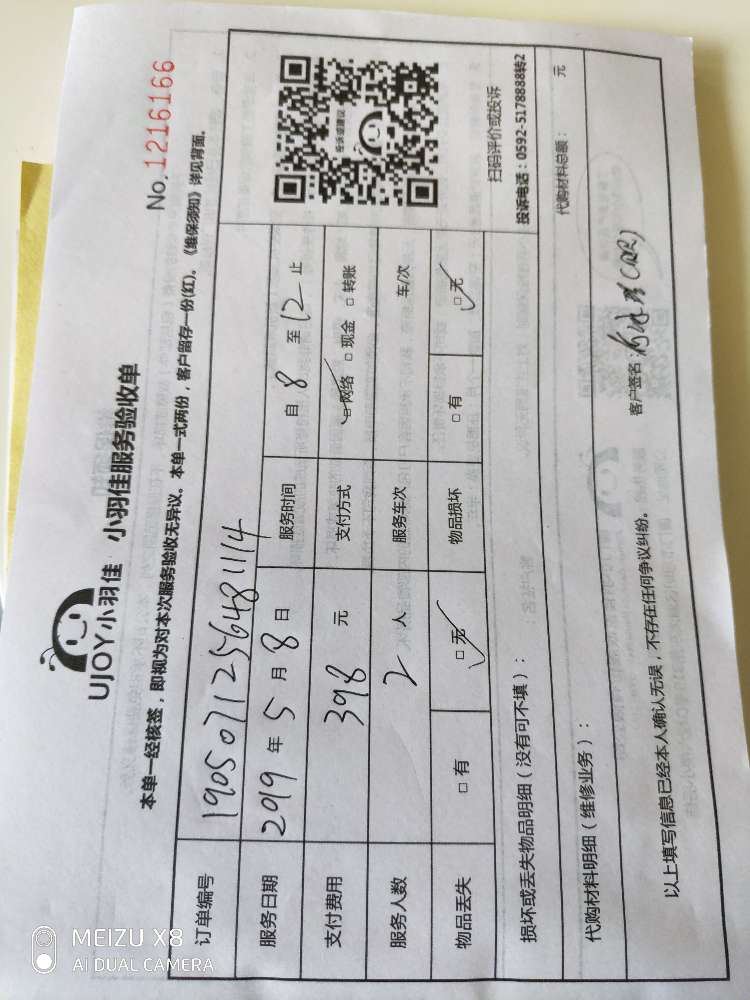 UJOY小羽佳 小羽佳服务验收单
No. 1216166
本单一经核签，即视为对本次服务验收无异议。本单一式两份，客户留存一份(红)。《维保须知》详见背面。
订单编号 1905071256481114
服务日期 2019 年 5 月 8 日 服务时间 自 8 至 12 止
支付费用 398 元 支付方式 □网络 □现金 □转账
服务人数 2 人 服务车次 车/次
物品丢失 □有 □无 物品损坏 □有 □无
投诉或建议
扫码评价或投诉
投诉电话：0592-5178888转2
损坏或丢失物品明细（没有可不填）：
代购材料明细（维修业务）： 代购材料总额： 元
以上填写信息已经本人确认无误，不存在任何争议纠纷。 客户签名：
MEIZU X8
AI DUAL CAMERA